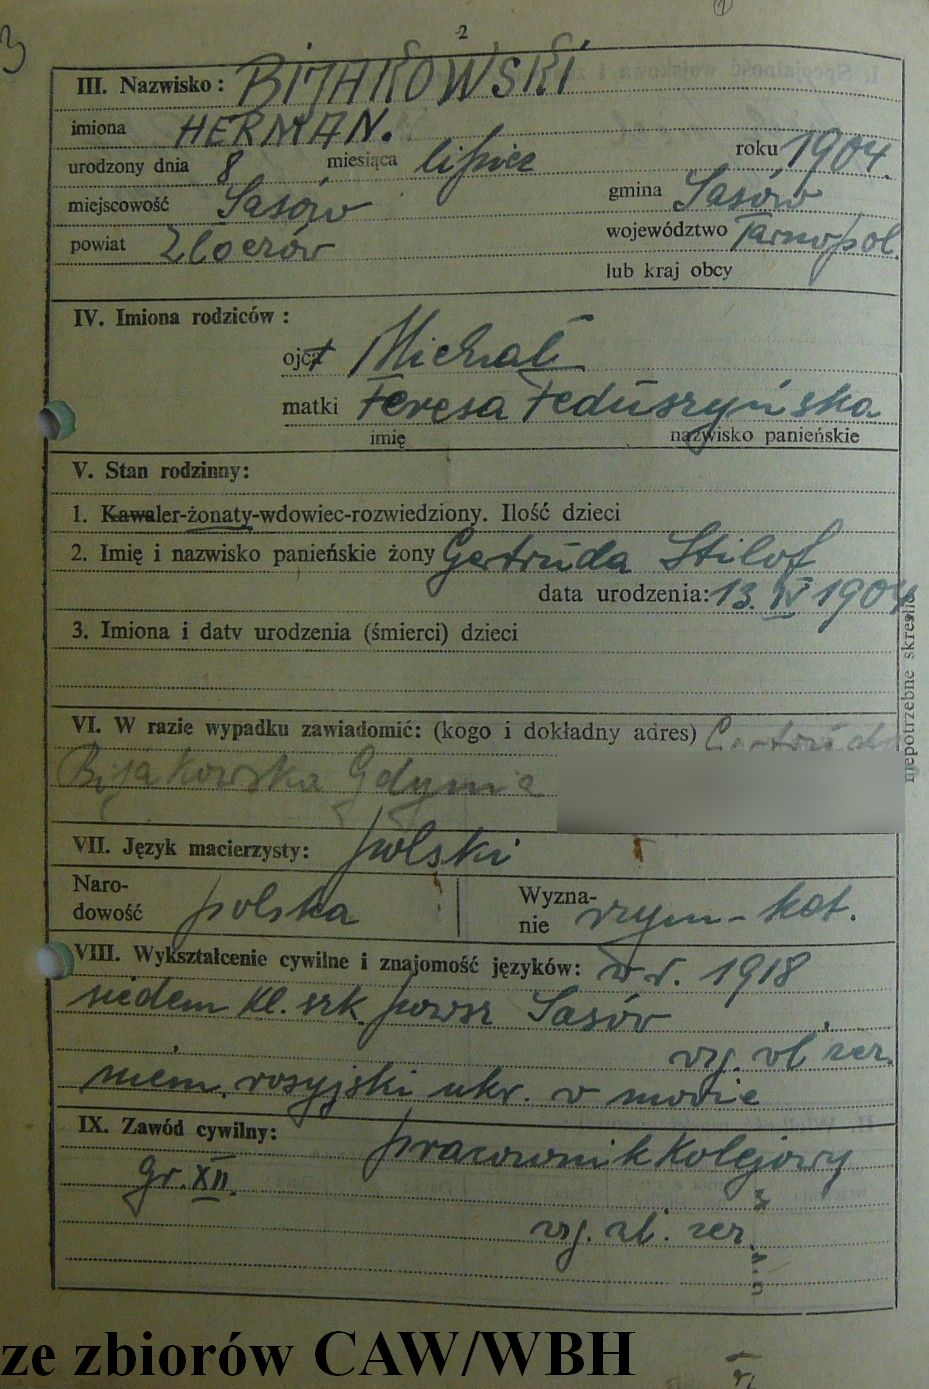 3
2
III. Nazwisko: BIJAKOWSKI
imiona HERMAN.
urodzony dnia 8 miesiąca lipiec roku 1904.
miejscowość Sasów gmina Sasów
powiat Złoczów województwo Tarnopol.
lub kraj obcy
IV. Imiona rodziców:
ojca Michał
matki Teresa Feduszyńska
imię nazwisko panieńskie
V. Stan rodzinny:
1. Kawaler-żonaty-wdowiec-rozwiedziony. Ilość dzieci
2. Imię i nazwisko panieńskie żony Gertruda Stilof
data urodzenia: 13. IV 1904
niepotrzebne skreślić
3. Imiona i daty urodzenia (śmierci) dzieci
VI. W razie wypadku zawiadomić: (kogo i dokładny adres) Gertruda
Bijakowska Gdynia
VII. Język macierzysty: polski
Naro-
dowość polska
Wyzna-
nie rzym-kat.
VIII. Wykształcenie cywilne i znajomość języków: w r. 1918
siedem kl. szk. powsz Sasów
wg. ośw zer.
niem. rosyjski ukr. w mowie
IX. Zawód cywilny: pracownik kolejowy
gr. XII.
zer.
ze zbiorów CAW/WBH